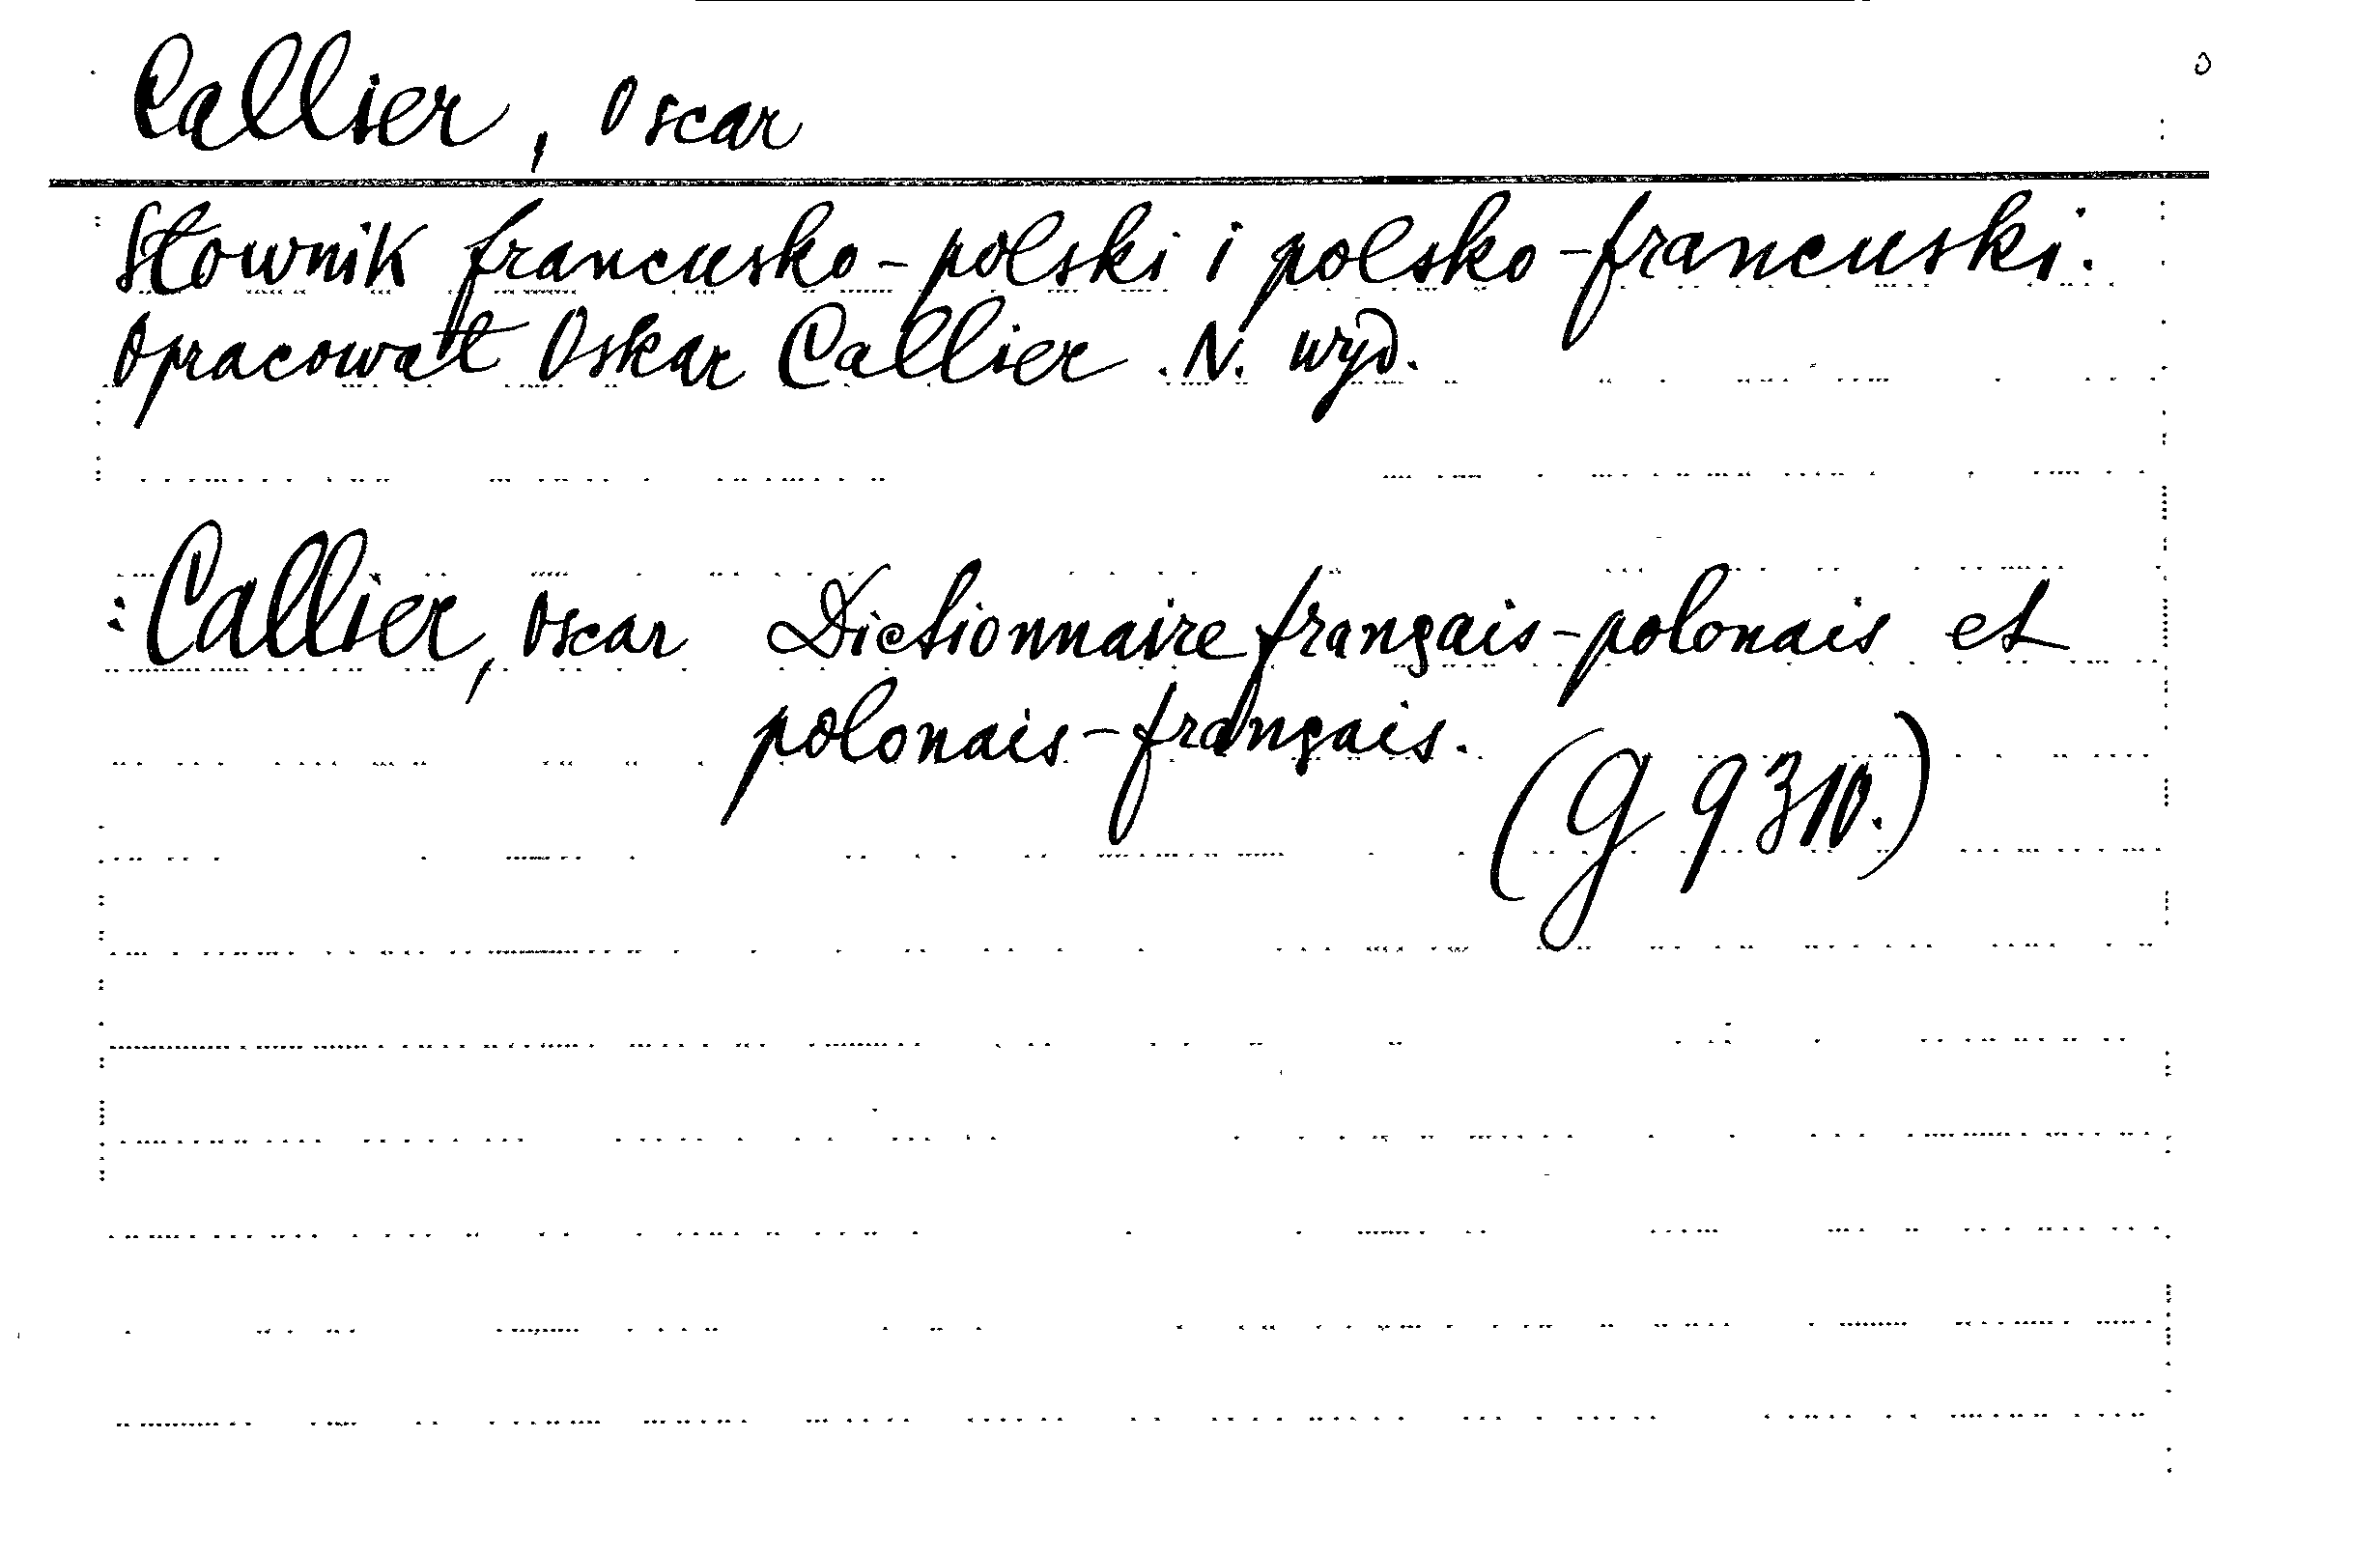 Callier, Oscar
Słownik francusko-polski i polsko-francuski.
Opracował Oskar Callier. N. wyd.
: Callier, Oscar Dictionnaire français-polonais et
polonais-français.
(G 9310.)